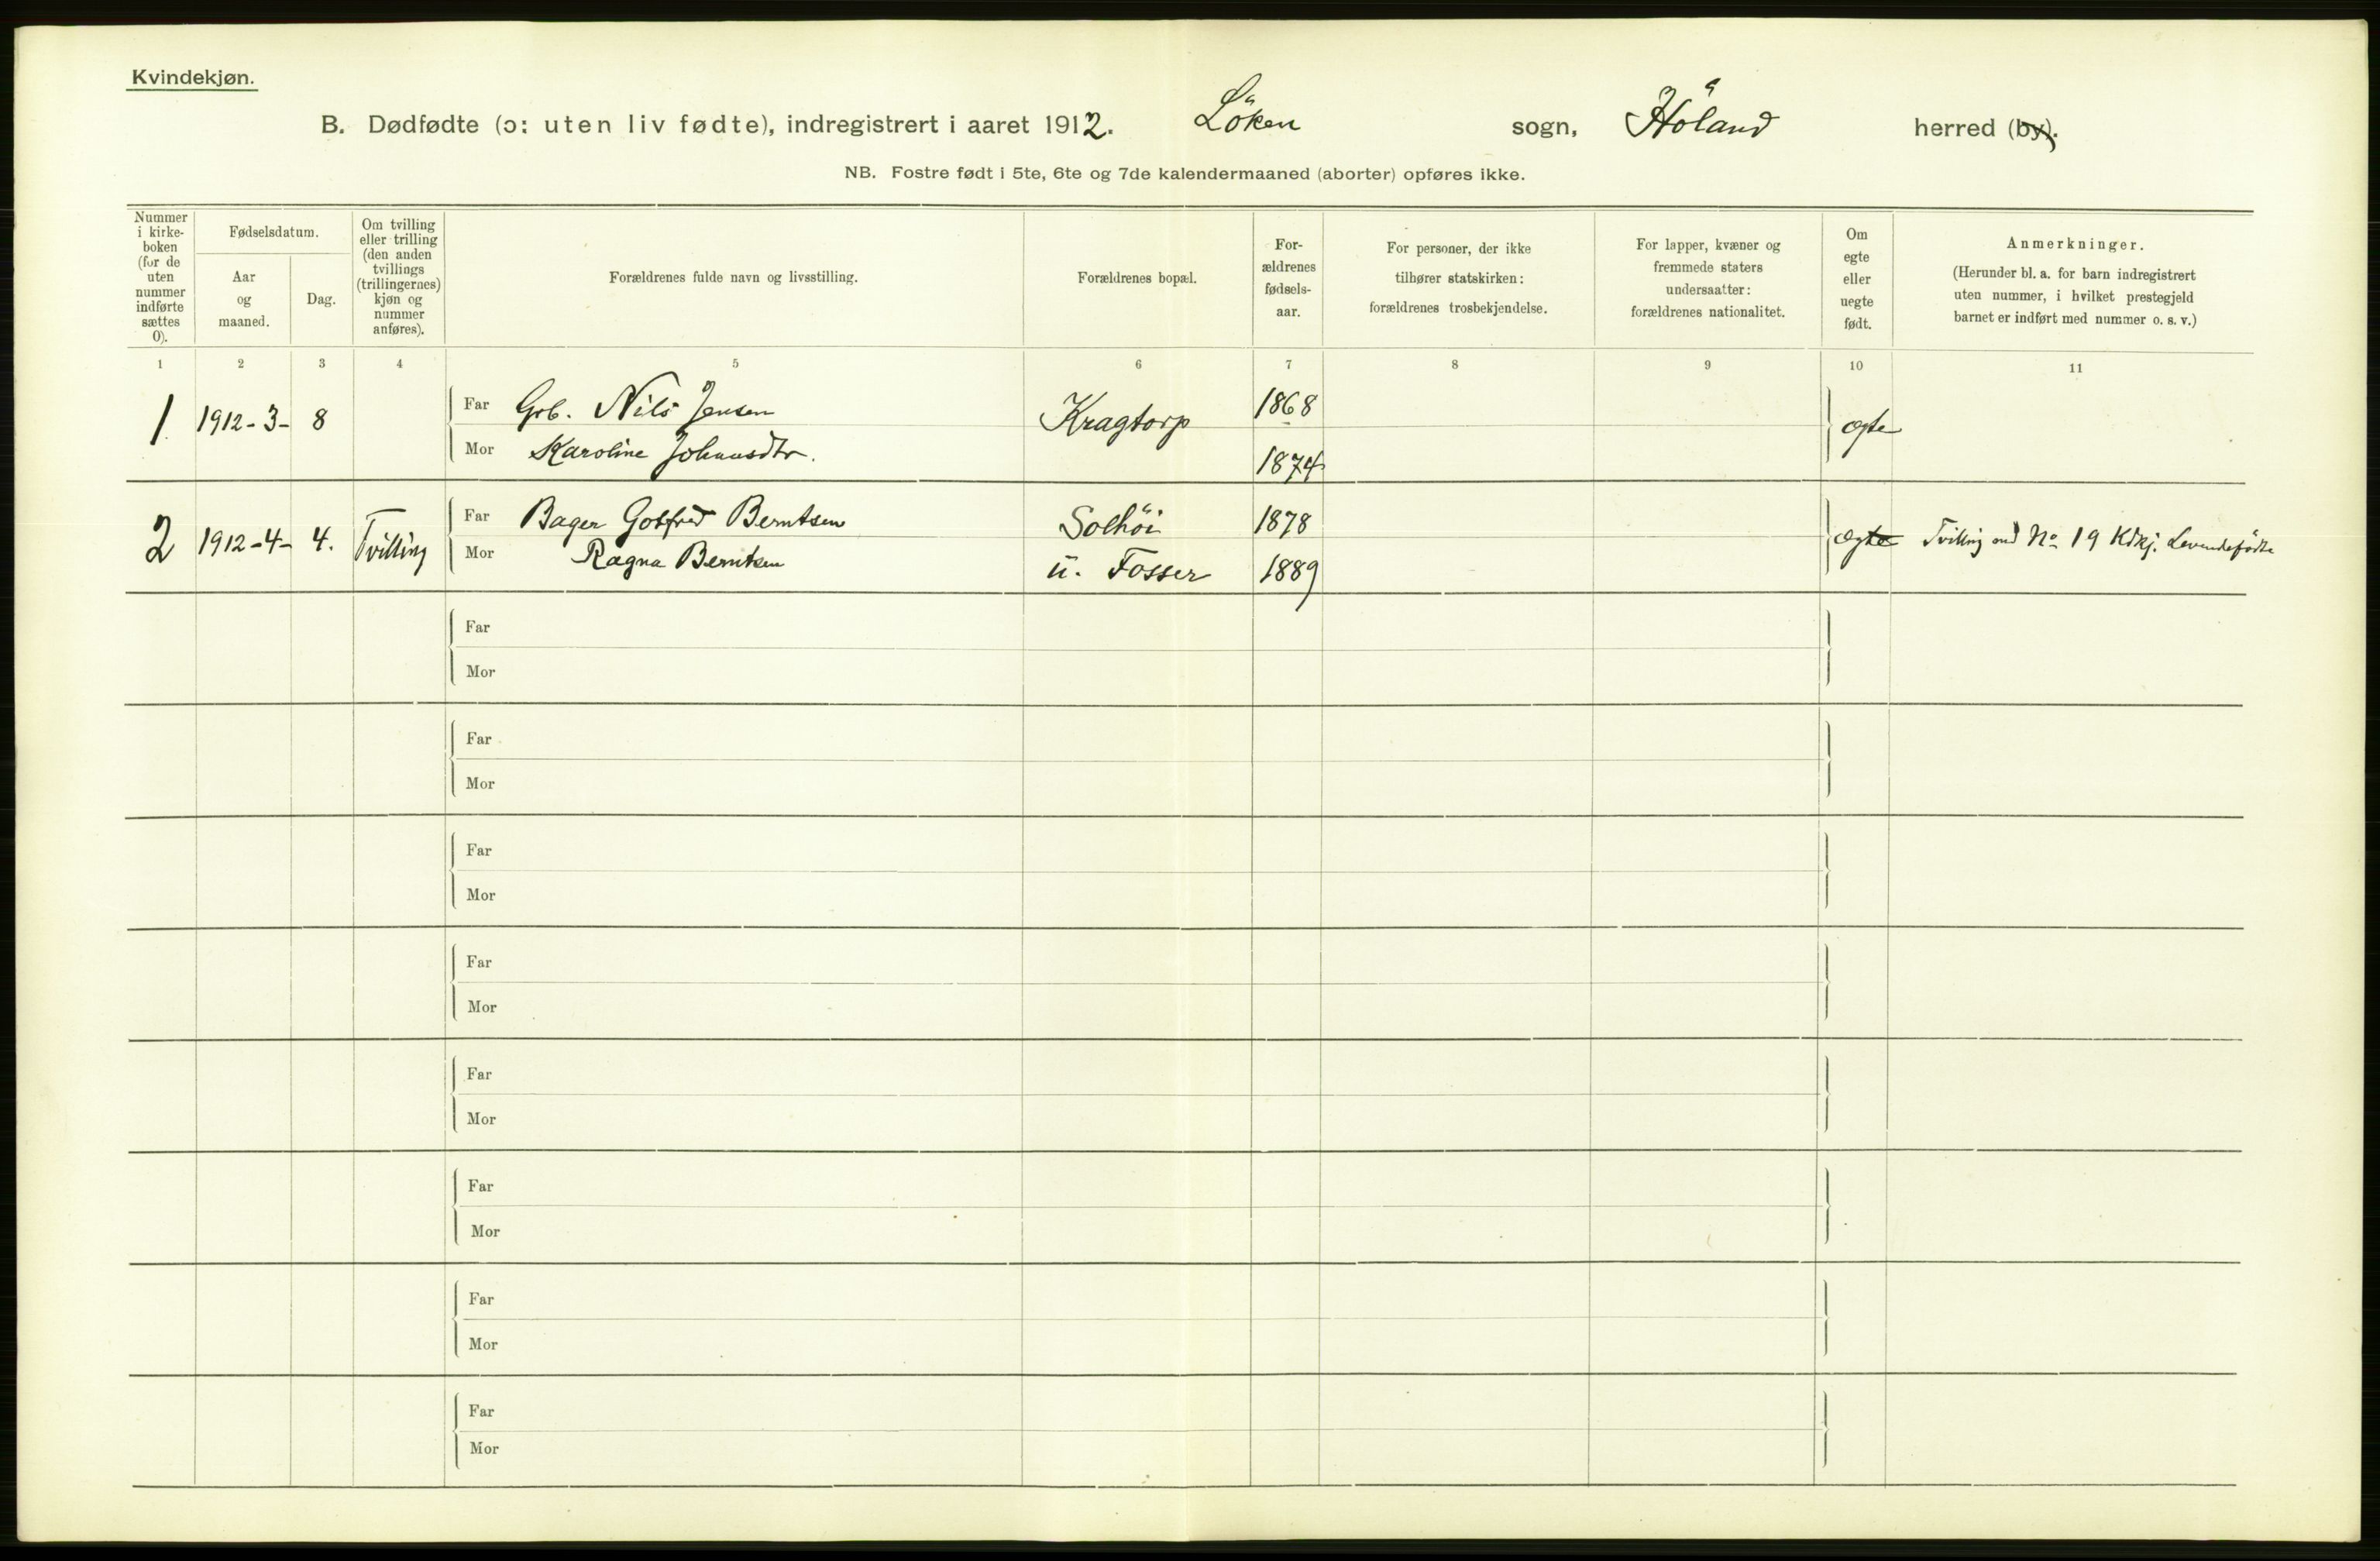 Kvindekjøn.
B. Dødfødte (ɔ: uten liv fødte), indregistrert i aaret 1912. Löken sogn, Höland herred (by).
NB. Fostre født i 5te, 6te og 7de kalendermaaned (aborter) opføres ikke.
Nummer i kirke-boken (for de uten nummer indførte sættes 0).
Fødselsdatum.
Aar og maaned.
Dag.
Om tvilling eller trilling (den anden tvillings (trillingernes) kjøn og nummer anføres).
Forældrenes fulde navn og livsstilling.
Forældrenes bopæl.
For-ældrenes fødsels-aar.
For personer, der ikke tilhører statskirken: forældrenes trosbekjendelse.
For lapper, kvæner og fremmede staters undersaatter: forældrenes nationalitet.
Om egte eller uegte født.
Anmerkninger.
(Herunder bl. a. for barn indregistrert uten nummer, i hvilket prestegjeld barnet er indført med nummer o. s. v.)
1 2 3 4 5 6 7 8 9 10 11
1 1912-3- 8 Far Grb. Nils Jensen Kragtorp 1868 egte
Mor Karoline Johannsdtr. 1874
2 1912-4- 4. Tvilling Far Bager Gotfred Berntsen Solhöi 1878 egte Tvilling med No 19 Kdkj. Levendefödte
Mor Ragna Berntsen u. Fosser 1889
Far
Mor
Far
Mor
Far
Mor
Far
Mor
Far
Mor
Far
Mor
Far
Mor
Far
Mor